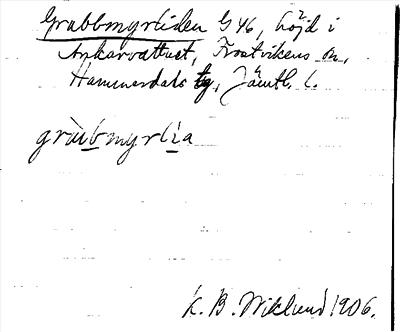 Grubbmyrliden G 46, höjd i
Ankarvattnet, Frostvikens sn,
Hammerdals tg, Jämtl. l.
grùbmyrlìa
K. B. Wiklund 1906.